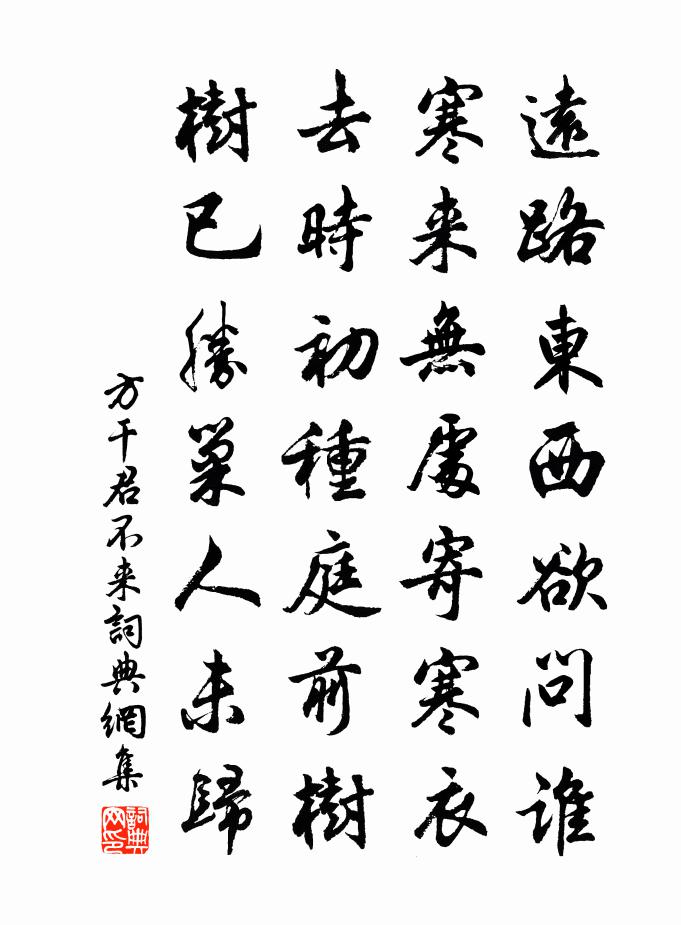 遠路東西欲問誰
寒来無處寄寒衣
去時初種庭前樹
樹已勝巢人未歸
方干君不来詞典網集
詞典网印